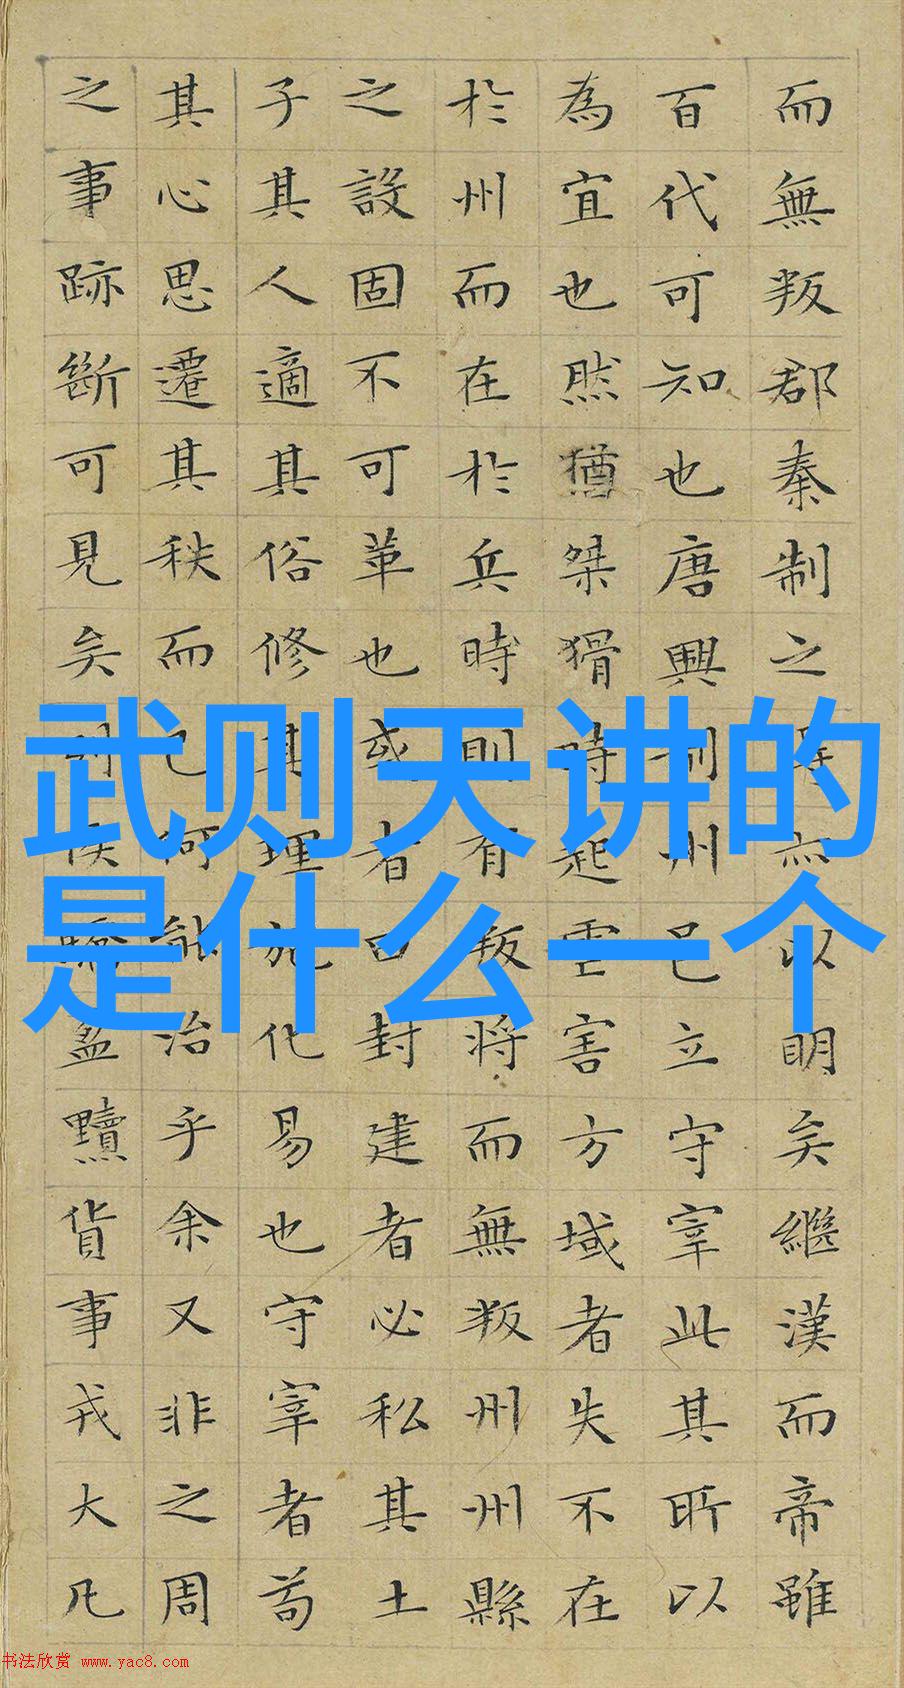 而無叛郡秦制之得亦以明矣繼漢而帝雖
百代可知也唐興制州邑立守宰此其所以
為宜也然猶桀猾時起虐害方域者失不在
於州而在於兵時則有叛將而無叛州州縣
之設固不可革也或者曰封建者必私其土
子其人適其俗修其理施化易也守宰者苟
其心思遷其秩而已何能治乎余又非之周
之事跡斷可見矣列侯驕盈黷貨事戎大凡
武则天讲的
是什么一个
书法欣赏 www.yac8.com